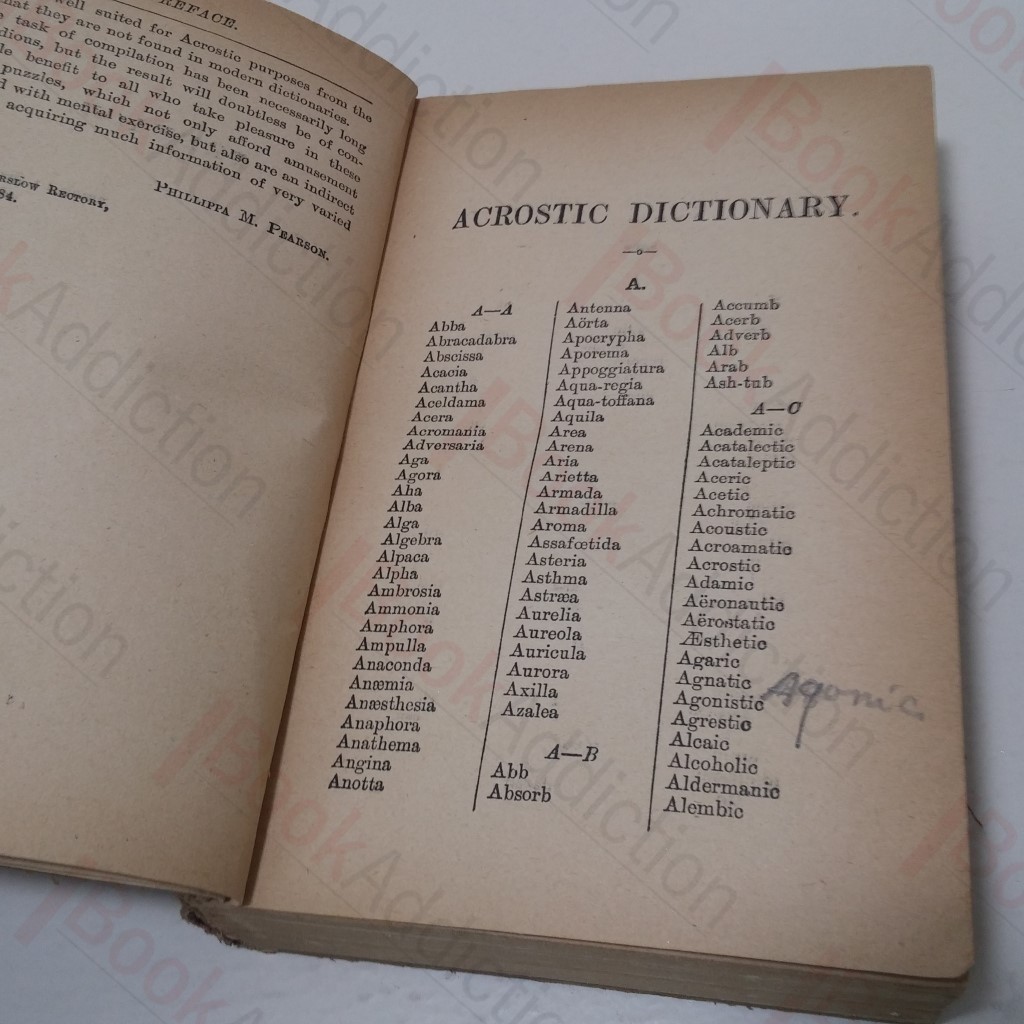 REFACE.
well suited for Acrostic purposes from the
hat they are not found in modern dictionaries.
task of compilation has been necessarily long
dious, but the result will doubtless be of con-
le benefit to all who take pleasure in these
puzzles, which not only afford amusement
d with mental exercise, but also are an indirect
acquiring much information of very varied
PHILLIPPA M. PEARSON.
RSLOW RECTORY,
84.
ACROSTIC DICTIONARY.
A.
A—A
Abba
Abracadabra
Abscissa
Acacia
Acantha
Aceldama
Acera
Acromania
Adversaria
Aga
Agora
Aha
Alba
Alga
Algebra
Alpaca
Alpha
Ambrosia
Ammonia
Amphora
Ampulla
Anaconda
Anæmia
Anæsthesia
Anaphora
Anathema
Angina
Anotta
Antenna
Aörta
Apocrypha
Aporema
Appoggiatura
Aqua-regia
Aqua-toffana
Aquila
Area
Arena
Aria
Arietta
Armada
Armadilla
Aroma
Assafœtida
Asteria
Asthma
Astræa
Aurelia
Aureola
Auricula
Aurora
Axilla
Azalea
A—B
Abb
Absorb
Accumb
Acerb
Adverb
Alb
Arab
Ash-tub
A—C
Academic
Acatalectic
Acataleptic
Aceric
Acetic
Achromatic
Acoustic
Acroamatic
Acrostic
Adamic
Aëronautic
Aërostatic
Æsthetic
Agaric
Agnatic
Agonic
Agonistic
Agrestic
Alcaic
Alcoholic
Aldermanic
Alembic
BookAddiction